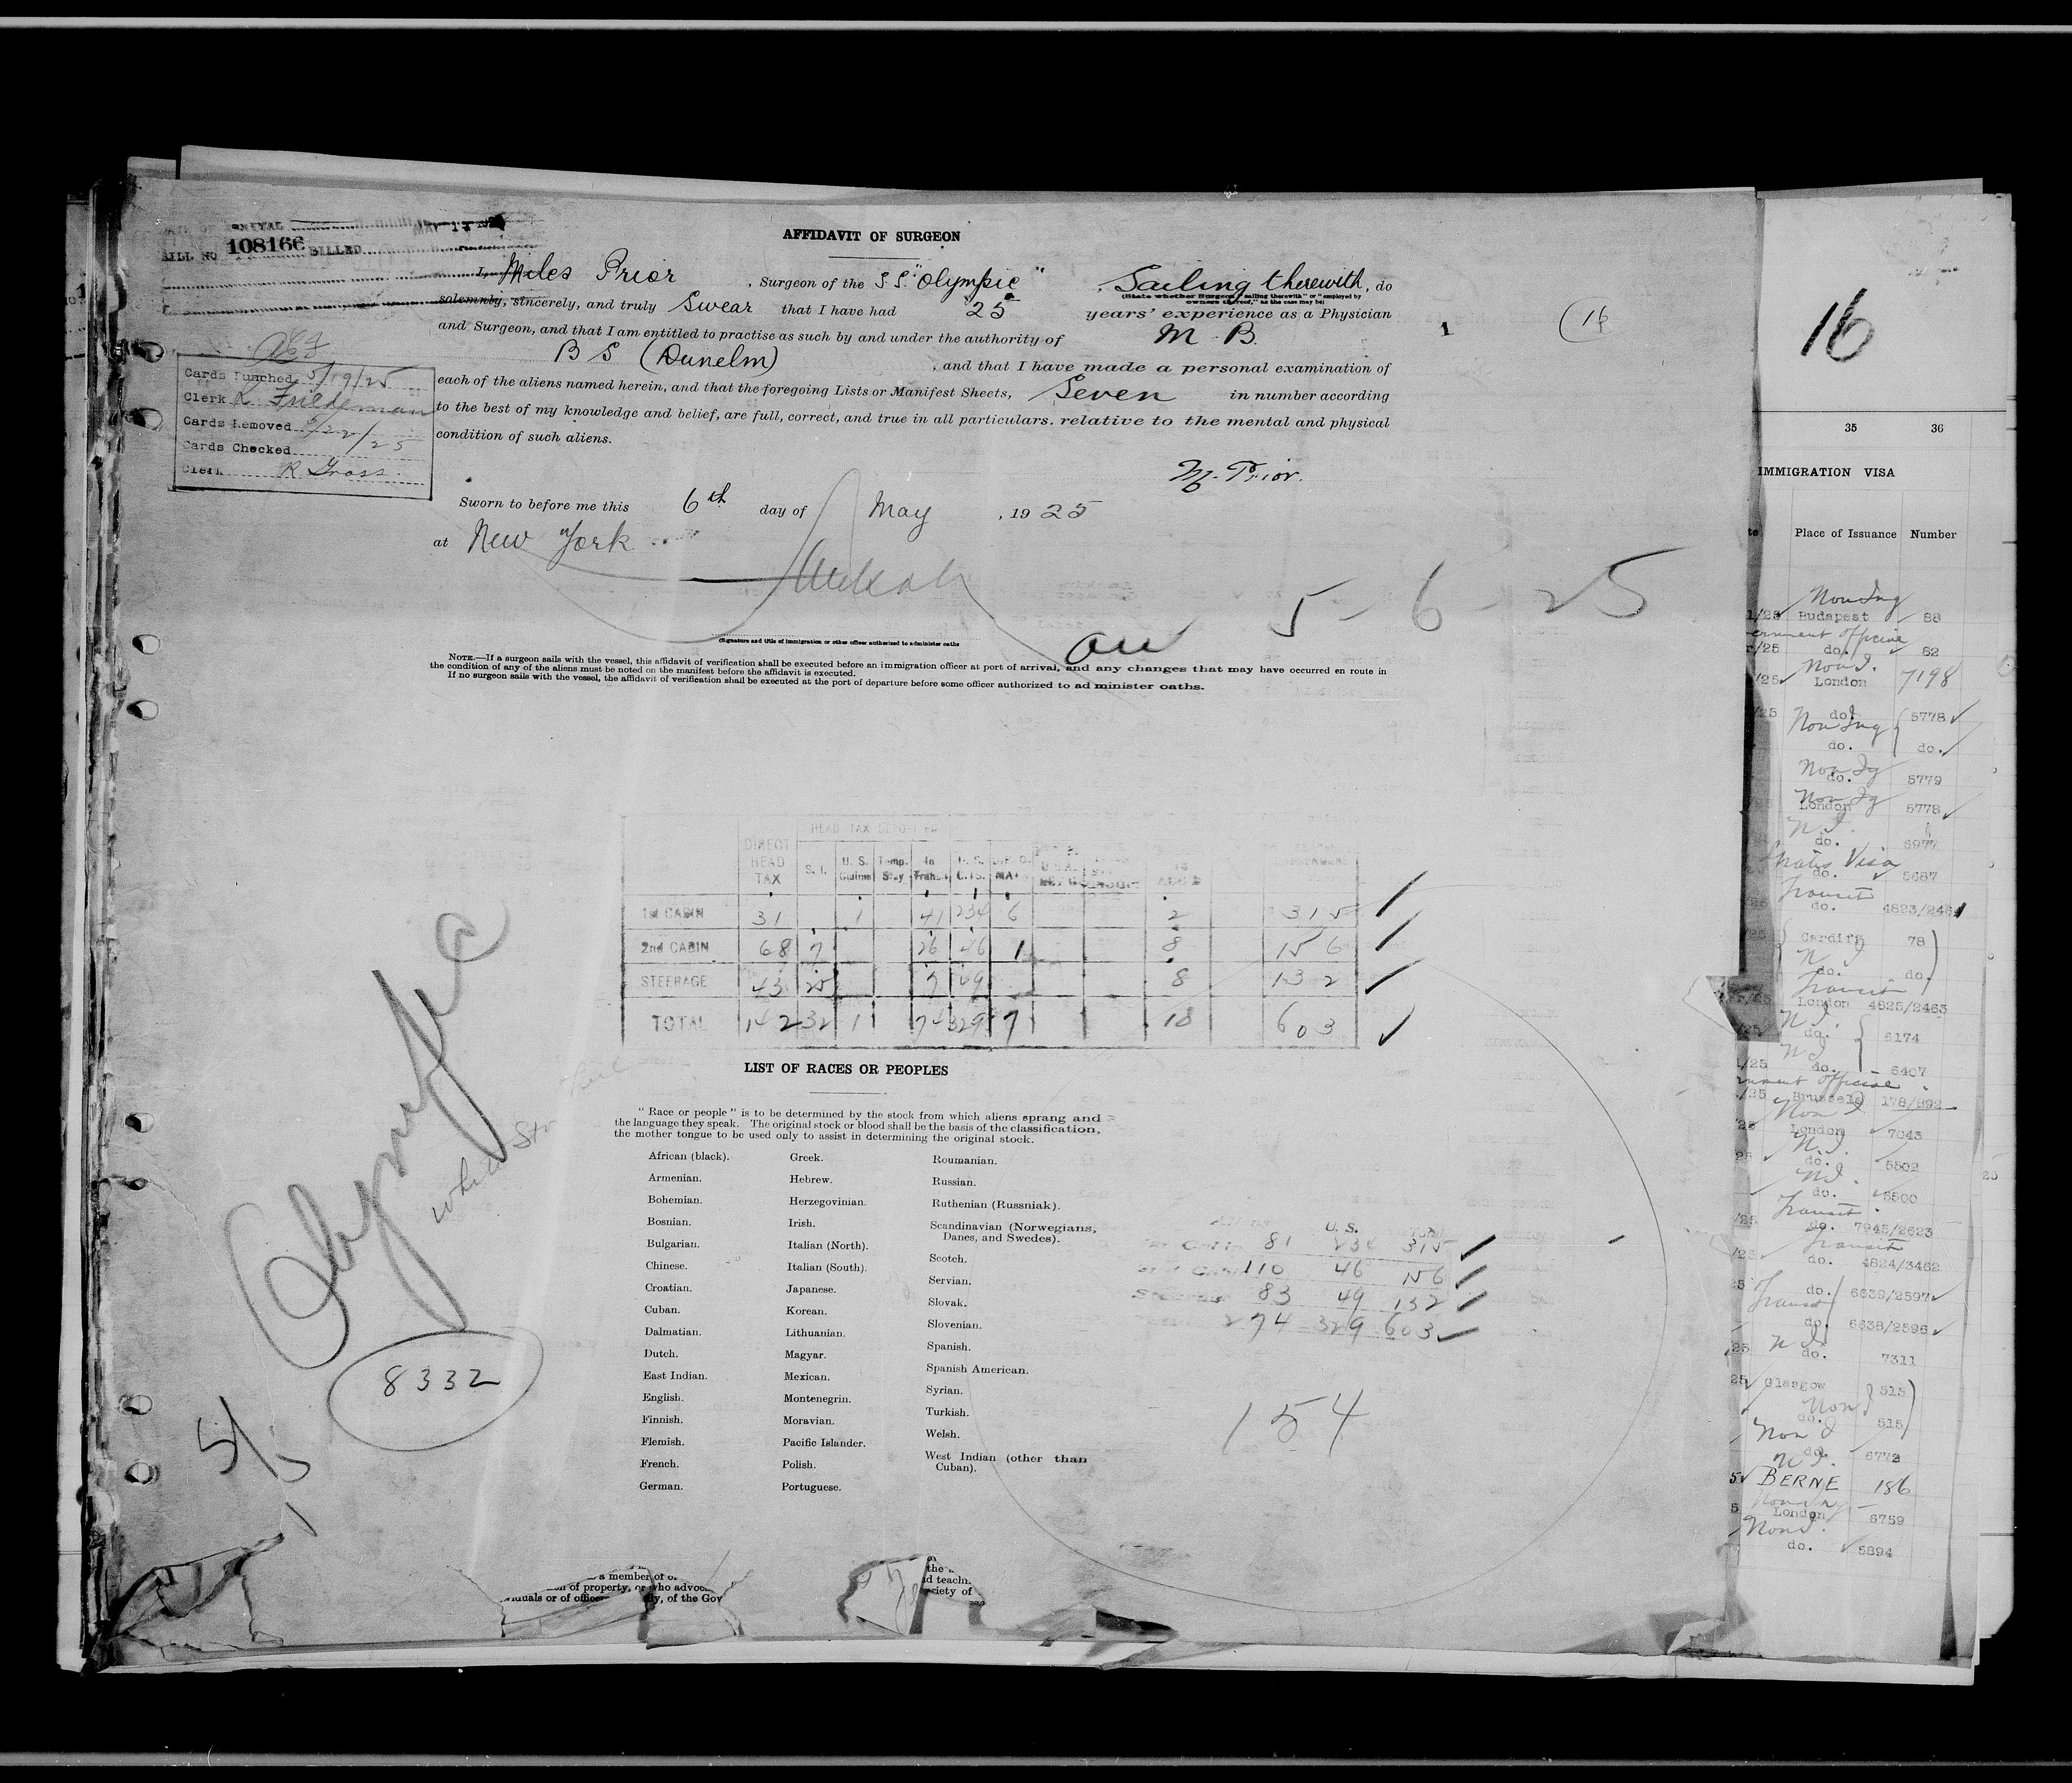 BILL NO 108166 BILLED
AFFIDAVIT OF SURGEON
I, Miles Prior , Surgeon of the S S. "Olympic" , Sailing therewith, do
(State whether Surgeon "sailing therewith" or "employed by
owners thereof," as the case may be)
solemnly, sincerely, and truly Swear that I have had 25 years' experience as a Physician
and Surgeon, and that I am entitled to practise as such by and under the authority of M. B.
B S (Dunelm) , and that I have made a personal examination of
each of the aliens named herein, and that the foregoing Lists or Manifest Sheets, Seven in number according
to the best of my knowledge and belief, are full, correct, and true in all particulars. relative to the mental and physical
condition of such aliens.
M. Prior.
1
16
Cards Punched 5/19/25
Clerk L. Friedeman
Cards Removed 5/22/25
Cards Checked
Clerk R Gross
Sworn to before me this 6th day of May , 19 25
at New York
5 - 6 - 25
(Signature and title of immigration or other officer authorized to administer oaths
NOTE.—If a surgeon sails with the vessel, this affidavit of verification shall be executed before an immigration officer at port of arrival, and any changes that may have occurred en route in
the condition of any of the aliens must be noted on the manifest before the affidavit is executed.
If no surgeon sails with the vessel, the affidavit of verification shall be executed at the port of departure before some officer authorized to ad minister oaths.
DIRECT HEAD TAX S. I. U. S. Claims Temp. Stay In Trans. U. S. CITS.
1st CABIN 31 1 41 234 6 2 315
2nd CABIN 68 7 26 46 1 8 156
STEERAGE 43 25 7 49 8 132
TOTAL 142 32 1 74 329 7 18 603
LIST OF RACES OR PEOPLES
" Race or people " is to be determined by the stock from which aliens sprang and
the language they speak. The original stock or blood shall be the basis of the classification,
the mother tongue to be used only to assist in determining the original stock.
African (black).
Armenian.
Bohemian.
Bosnian.
Bulgarian.
Chinese.
Croatian.
Cuban.
Dalmatian.
Dutch.
East Indian.
English.
Finnish.
Flemish.
French.
German.
Greek.
Hebrew.
Herzegovinian.
Irish.
Italian (North).
Italian (South).
Japanese.
Korean.
Lithuanian.
Magyar.
Mexican.
Montenegrin.
Moravian.
Pacific Islander.
Polish.
Portuguese.
Roumanian.
Russian.
Ruthenian (Russniak).
Scandinavian (Norwegians,
Danes, and Swedes).
Scotch.
Servian.
Slovak.
Slovenian.
Spanish.
Spanish American.
Syrian.
Turkish.
Welsh.
West Indian (other than
Cuban).
Aliens U. S. Total
1st Cabin 81 234 315
2nd Cabin 110 46 156
Steerage 83 49 132
274 329 603
154
Olympic
White Str
8332
5/5
a member of
of property, or who advoc
viduals or of office ly, of the Gov
the
d teachi
ciety of
16
35 36
IMMIGRATION VISA
Place of Issuance Number
Non Img
Budapest 88
ernment official
do. 82
Non I.
London 7198
do. 5778
Non Img
do. do.
Non Ig
do. 5779
Non Ig
London 5778
N. I.
do. 5977
Visa
do. 5687
Transit
do. 4823/2461
Cardiff 78
N I
do. do.
Transit
London 4825/2463
N I.
do. 6174
N I
do. 6407
rnment official
Brussels 178/892
Non I
London 7043
N. I.
do. 5502
N I.
do. 5500
Transit
do. 7945/2623
Transit
do. 4824/3462
do. 6639/2597
Transit
do. 6638/2596
N I.
do. 7311
Glasgow 515
Non I
do. 515
Non I
do. 6772
N. I.
BERNE 186
Non Img
London 6759
Non I.
do. 5894